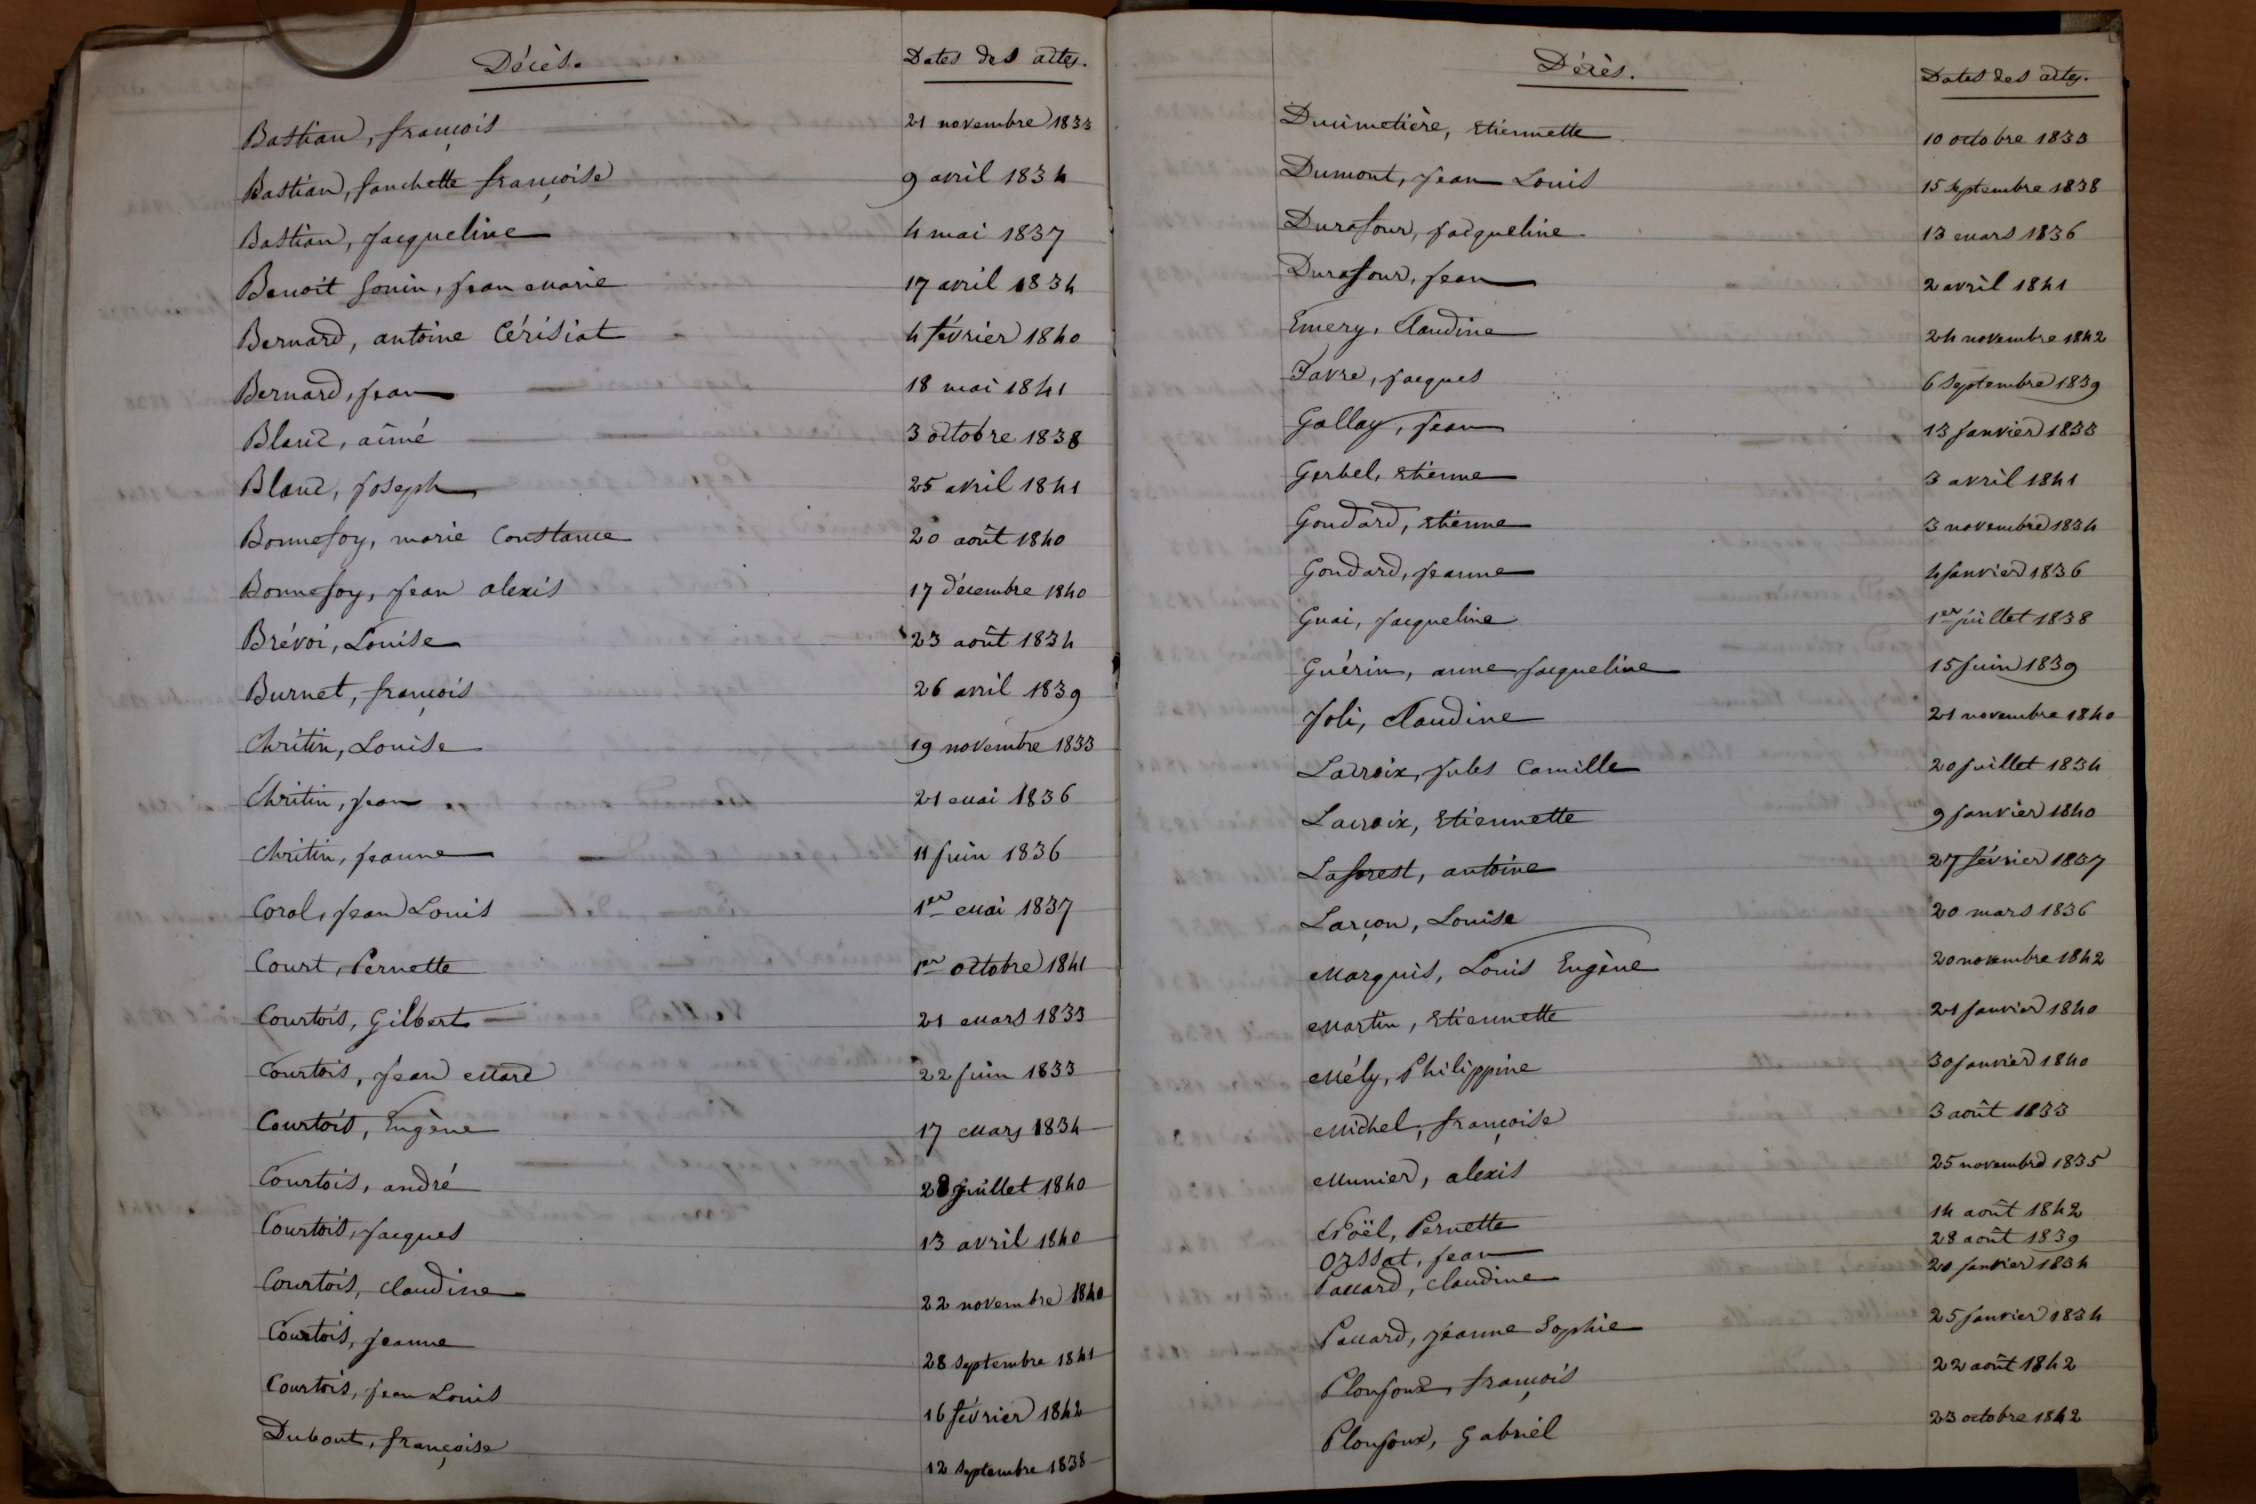 Décès.
Dates des actes.
Bastian, françois 21 novembre 1833
Bastian, fanchette françoise 9 avril 1834
Bastian, Jacqueline 4 mai 1837
Benoit Jonin, Jean Marie 17 avril 1834
Bernard, antoine Cérisiat 4 février 1840
Bernard, Jean 18 mai 1841
Blanc, aimé 3 octobre 1838
Blanc, Joseph 25 avril 1841
Bonnefoy, marie Constance 20 août 1840
Bonnefoy, Jean alexis 17 décembre 1840
Brévoi, Louise 23 août 1834
Burnet, françois 26 avril 1839
Chritin, Louise 19 novembre 1833
Chritin, Jean 21 mai 1836
Chritin, Jeanne 11 Juin 1836
Coral, Jean Louis 1er Mai 1837
Court, Pernette 1er octobre 1841
Courtois, Gilbert 21 Mars 1833
Courtois, Jean Marc 22 Juin 1833
Courtois, Eugène 17 Mars 1834
Courtois, andré 28 Juillet 1840
Courtois, Jacques 13 avril 1840
Courtois, claudine 22 novembre 1840
Courtois, Jeanne 28 septembre 1841
Courtois, Jean Louis 16 février 1842
Dubout, françoise 12 septembre 1838
Décès.
Dates des actes.
Ducimetière, Etiennette 10 octobre 1833
Dumont, Jean Louis 15 septembre 1838
Durafour, Jacqueline 13 mars 1836
Durafour, Jean 2 avril 1841
Emery, Claudine 24 novembre 1842
Favre, Jacques 6 septembre 1839
Gallay, Jean 13 Janvier 1833
Gerbel, Etienne 3 avril 1841
Goudard, Etienne 3 novembre 1834
Goudard, Jeanne 4 Janvier 1836
Guai, Jacqueline 1er Juillet 1838
Guérin, anne Jacqueline 15 Juin 1839
Joli, Claudine 21 novembre 1840
Lacroix, Jules Camille 20 Juillet 1834
Lacroix, Etiennette 9 Janvier 1840
Laforest, antoine 27 février 1837
Larçon, Louise 20 mars 1836
Marquis, Louis Eugène 20 novembre 1842
Martin, Etiennette 21 Janvier 1840
Mély, Philippine 30 Janvier 1840
Michel, françoise 3 août 1833
Munier, alexis 25 novembre 1835
Noël, Pernette 14 août 1842
Orssat, Jean 28 août 1839
Paccard, claudine 20 Janvier 1834
Paccard, Jeanne Sophie 25 Janvier 1834
Plonfoux, françois 22 août 1842
Plonfoux, Gabriel 23 octobre 1842